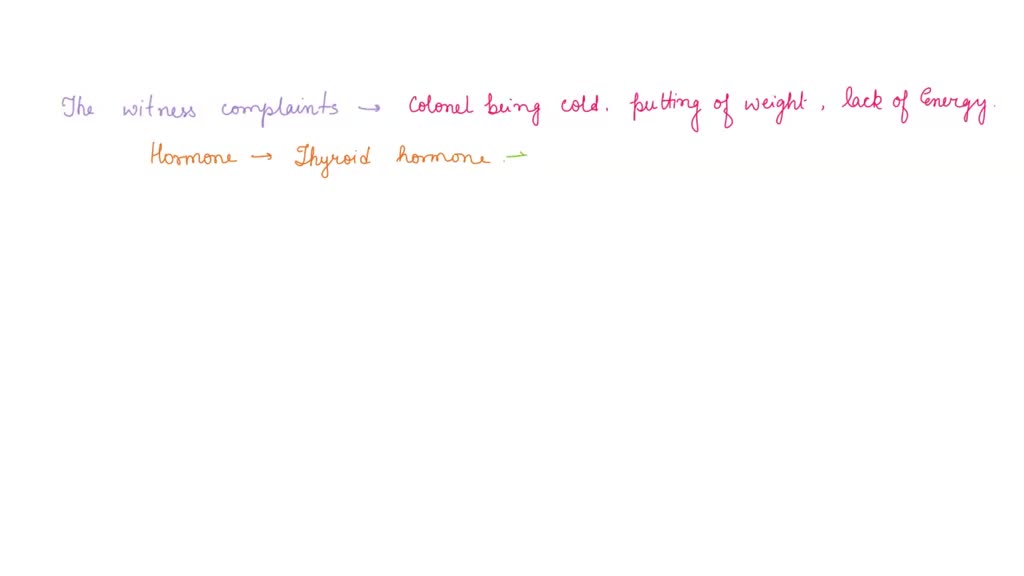 The witness complaints → Colonel being cold. putting of weight, lack of Energy.
Hormone → Thyroid hormone →